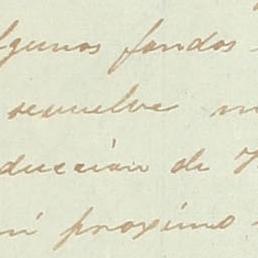 algunos fondos
resuelve
ducción de
proximo